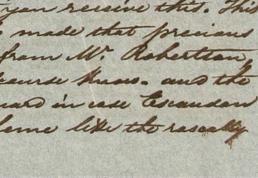 you receive this. This
made that precious
from Mr. Robertson,
course Knows. and the
in case Escandon
like the rascally